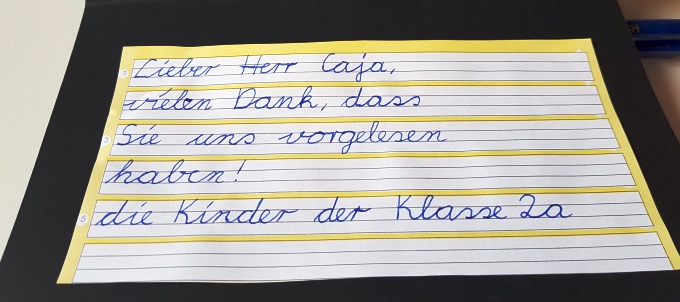 Lieber Herr Caja,
vielen Dank, dass
Sie uns vorgelesen
haben!
die Kinder der Klasse 2a